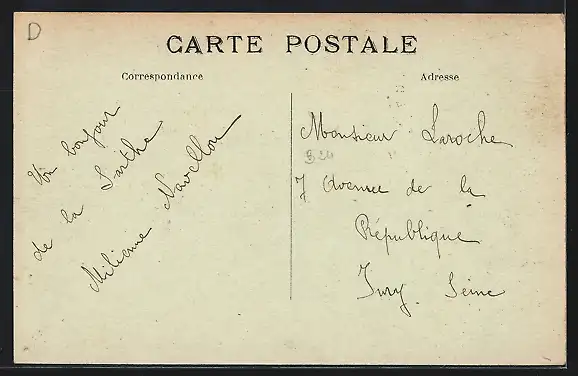 D
CARTE POSTALE
Correspondance
Adresse
Un bonjour
de la Sarthe
Milienne Navellou
Monsieur Laroche
B 20
7 Avenue de la
République
Ivry. Seine